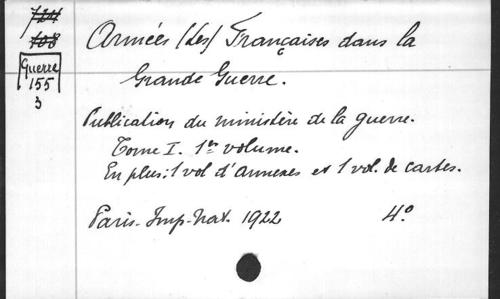 724
108
Guerre
155
3
Armées (Les) Françaises dans la
Grande Guerre.
Publication du ministère de la guerre.
Tome I. 1er volume.
En plus: 1 vol d'annexes et 1 vol. de cartes.
Paris. Imp. Nat. 1922 4°